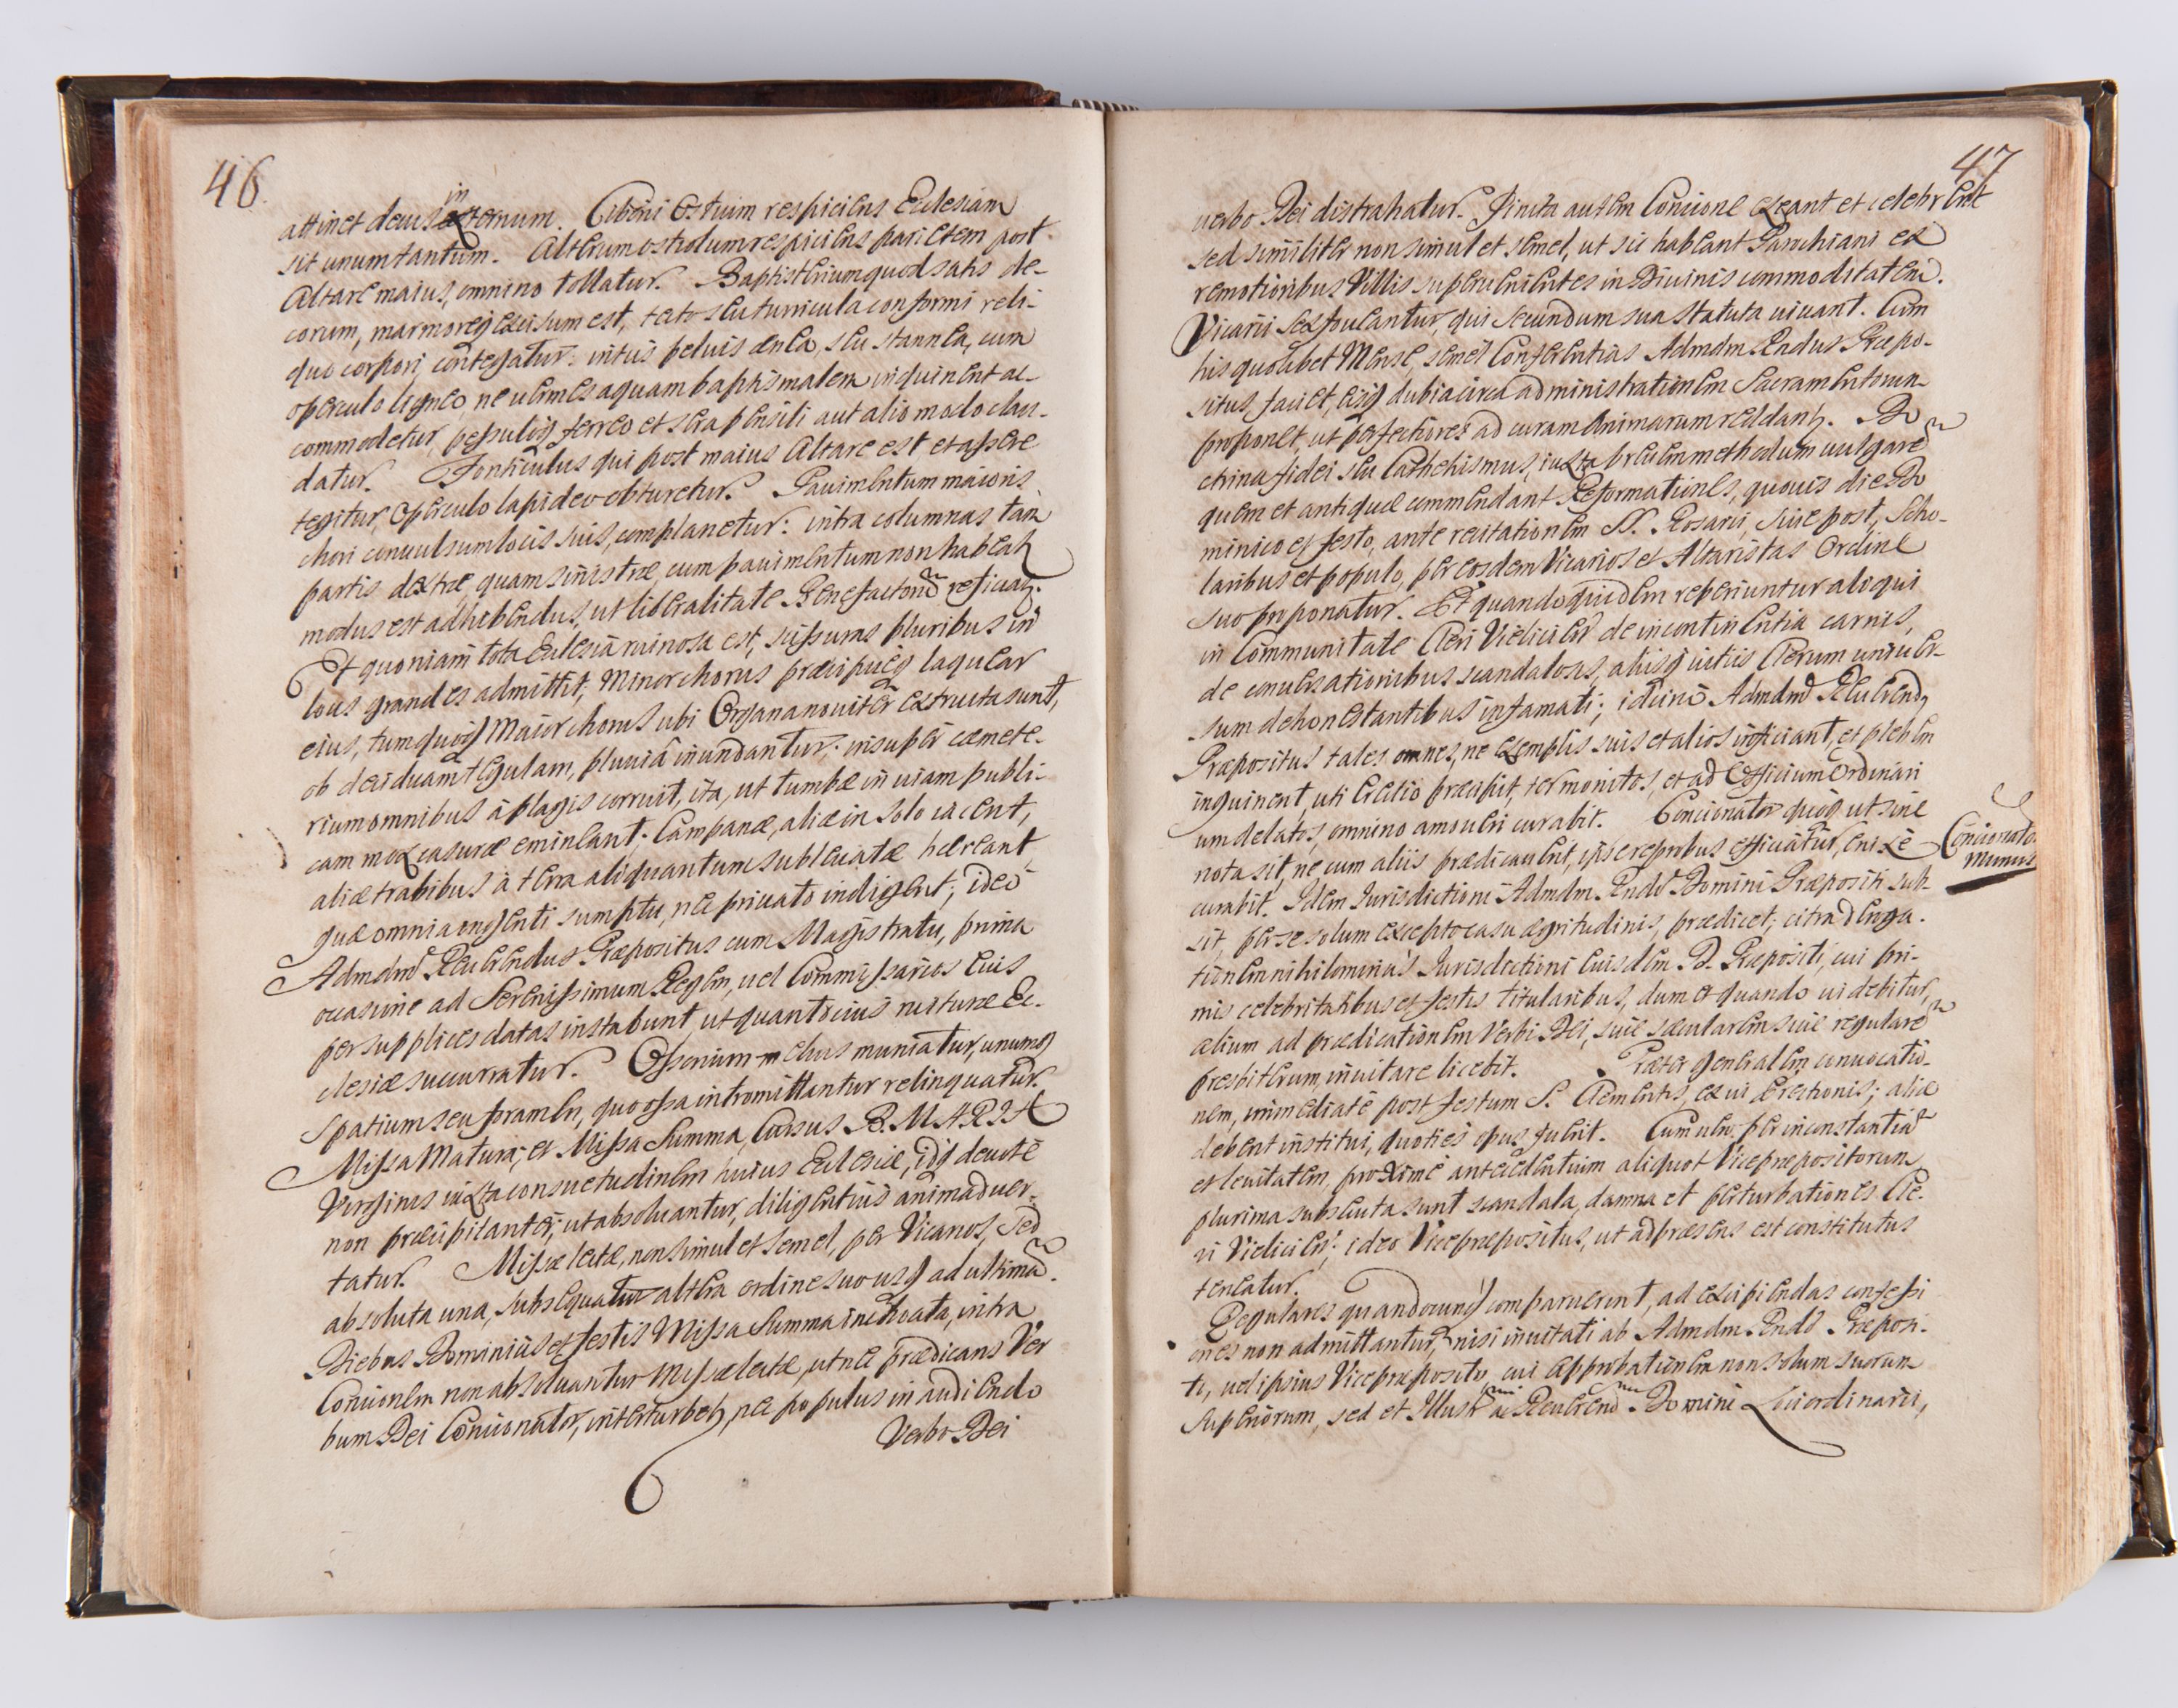 46
attinet decus in externum. Ciborii Ostium respiciens Ecclesiam
sit unum tantum. Alterum ostiolum respiciens parietem post
Altare maius, omnino tollatur. Baptisterium quod satis de-
corum, marmoreq excisum est, tecto seu turricula conformi reli-
quo corpori, contegatur: intus peluis ænea, seu stannea, cum
operculo ligneo, ne uermes aquam baptismalem inquinent ac-
commodetur, pessuloq ferreo et sera pensili aut alio modo clau-
datur. Fonticulus qui post maius Altare est et assere
tegitur, operculo lapideo obturetur. Pauimentum maioris
chori conuulsum locis suis, complanetur: intra columnas tam
partis dextræ, quam sinistræ, cum pauimentum non habeat
modus est adhibendus, ut liberalitate Benefactorũ reficiat.
Et quoniam tota Ecclesia ruinosa est, scissuras pluribus in
locis grandes admittit, Minor chorus præcipueq laquear
eius, tumquoq Maior chorus ubi Organa nouiter extructa sunt,
ob deciduam tegulam, pluuiâ inundantur: insuper cæmete-
rium omnibus à plagis corruit, ita, ut tumbæ in uiam publi-
cam mox casuræ emineant. Campanæ, aliæ in solo iacent,
aliæ trabibus à terra aliquantum subleuatæ hæreant,
quæ omnia ingenti sumptu, nec priuato indigent; ideò
Admdm̃ Reuerendus Præpositus cum Magistratu, prima
occasione ad Serenissimum Regem, uel Commissarios eius
per supplices datas instabunt, ut quantocius ruituræ Ec-
clesiæ succurratur. Ossorium melius muniatur, unumq
spatium seu foramen, quo ossa intromittantur relinquatur.
Missa Matura, et Missa Summa, Cursus B. MARIÆ
Virginis iuxta consuetudinem huius Ecclesiæ, idq deuotè
non præcipitanter, ut absoluantur, diligentius animaduer-
tatur. Missæ lectæ, non simul et semel, per Vicarios, sed
absoluta una, subsequatur altera ordine suo usq ad ultimã.
Diebus Dominicis et festis Missa Summa inchoata, intra
Concionem non absoluantur Missæ lectæ, ut nec prædicans Ver
bum Dei Concionator, interturbet, nec populus in audiendo
Verbo Dei
47
uerbo Dei distrahatur. Finita autem Concione exeant et celebrent
sed similiter non simul et semel, ut sic habeant Parochiani ex
remotioribus Villis superuenientes in Diuinis commoditatem.
Vicarii sex foueantur, qui secundum sua Statuta uiuant. Cum
his quolibet Mense, semel Conferentias Admdm Rndus Præpo-
situs faciet, eisq dubia circa administrationem Sacramentorum
proponet, ut perfectiores ad curam Animarum reddant. Do
ctrina fidei seu Cathehismus, iuxta breuem methodum uulgarẽ
quem et antiquæ commendant Reformationes, quouis die Do
minico et festo, ante recitationem SS. Rosarii, siue post, Scho-
laribus et populo, per eosdem Vicarios et Altaristas Ordine
suo proponatur. Et quandoquidem reperiuntur aliqui
in Communitate Cleri Vielicien̄ de incontinentia carnis,
de conuersationibus scandalosis, aliisq uitiis Clerum uniuer-
sum dehonestantibus infamati; idcirco Admdm̃ Reuerend
Præpositus tales omnes, ne exemplis suis et alios inficiant, et plebem
inquinent, uti Erectio præcipit, ter monitos, et ad Officium Ordinari
um delatos, omnino amoueri curabit. Concionator quoq ut sine
nota sit, ne cum aliis prædicauerit, ipse reprobus efficiatur, enixè
curabit. Idem Iurisdictioni Admdm. Rndi Domini Præpositi sub-
sit, per se solum excepto casu ægritudinis, prædicet; citra deroga-
tionem nihilominus Iurisdictioni eiusdem D. Præpositi, cui pri-
mis celebritatibus et festis titularibus, dum et quando uidebitur,
alium ad prædicationem Verbi Dei, siue sæcularem siue regularẽ
præsbiterum, inuitare licebit. Præter generalem conuocatio-
nem, immediatè post festum S. Clementis, ex ui erectionis; aliæ
debent institui, quoties opus fuerit. Cum uero per inconstantiã
et leuitatem, proximè antecedentium aliquot Vicepræpositorum
plurima subsecuta sunt scandala, damna et perturbationes Cle-
ri Vielicien̄; ideo Vicepræpositus, ut ad præsens est constitutus
teneatur.
Regulares quandocunq comparuerint, ad excipiendas confessi
ones non admittantur, nisi inuitati ab Admdm. Rndo Præposi-
to, uel ipsius Vicepræposito, cui Approbationem non solum suorum
Superiorum, sed et Illustrmi ac Reuerendmi Domini Loci ordinarii,
Concionatoris
Munus